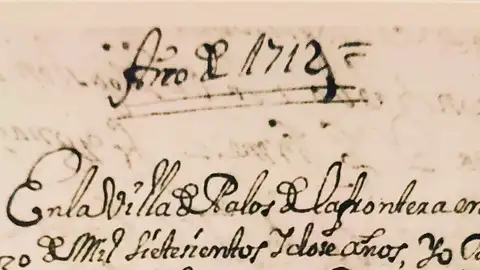 Año de 1712
En la Villa de Palos de la frontera en
de Mil sietesientos y dose años, Yo